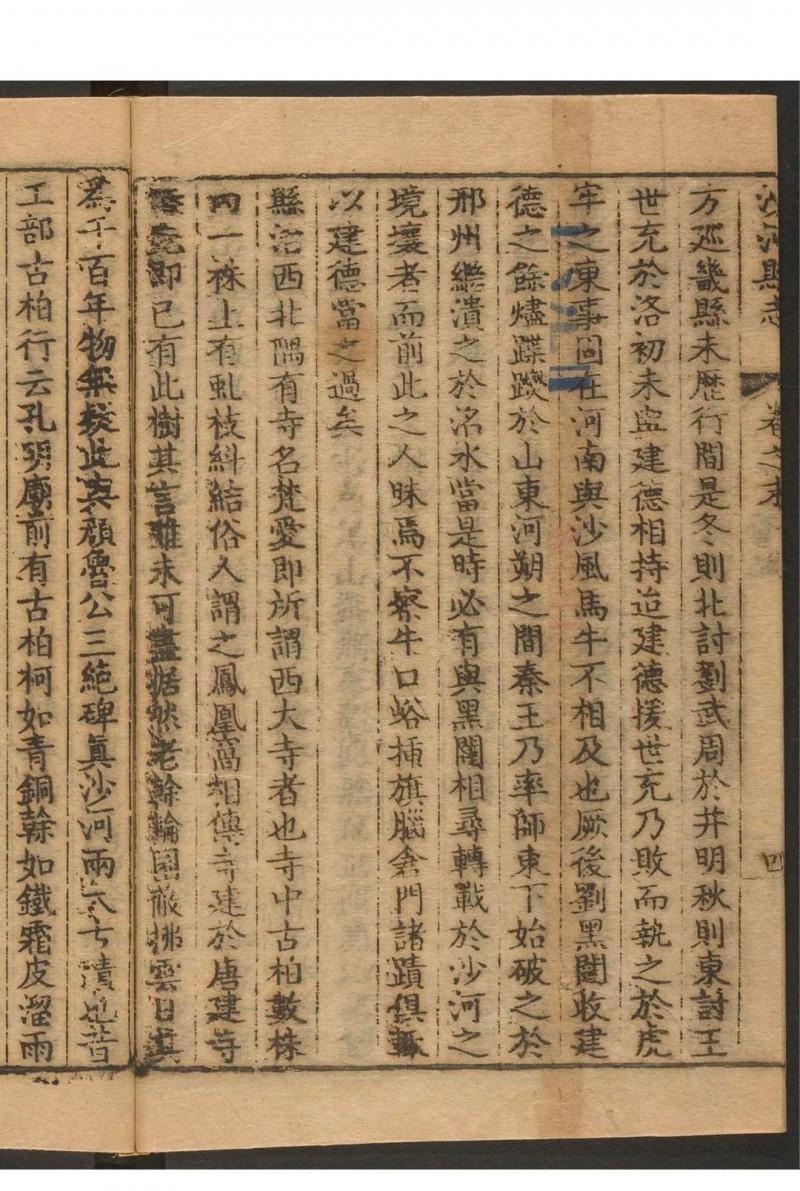 沙河縣志 卷之末 四
方廵畿縣未歴行間是冬則北討劉武周於并明秋則東討王
世充於洛初未與建德相持迨建德援世充乃敗而執之於虎
牢之東事固在河南與沙風馬牛不相及也厥後劉黑闥收建
德之餘燼蹀躞於山東河朔之間秦王乃率師東下始破之於
邢州繼潰之於洺水當是時必有與黑闥相尋轉戰於沙河之
境壤者而前此之人昧焉不察牛口峪揷旗腦倉門諸蹟俱
以建德當之過矣
縣治西北隅有寺名梵愛即所謂西大寺者也寺中古柏數株
內一株上有虬枝糾結俗人謂之鳳凰窩相傳寺建於唐建寺
即已有此樹其言雖未可盡據然老榦輪囷嶶拂雲日真
爲千百年物無疑此與顔魯公三絶碑眞沙河兩大古蹟也昔
工部古柏行云孔明廟前有古柏柯如青銅榦如鐵霜皮溜雨